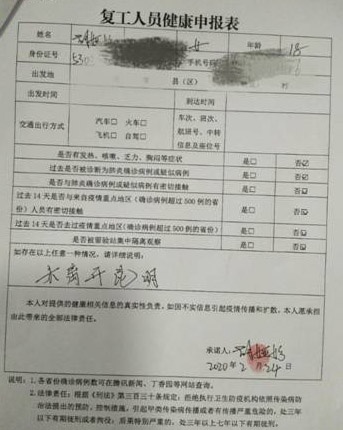 复工人员健康申报表
姓名 女 年龄 18
身份证号 530 手机号码
出发地 县（区） 村
出发时间 到达时间
交通出行方式 汽车□ 火车□ 飞机□ 自驾□ 车次、班次、航班号、中转信息及座位号
是否有发热、咳嗽、乏力、胸闷等症状 是□ 否☑
过去是否被诊断为肺炎确诊病例或疑似病例 是□ 否☑
是否与肺炎确诊病例或疑似病例有密切接触 是□ 否☑
过去14天是否与来自疫情重点地区（确诊病例超过500例的省份）人员有密切接触 是□ 否☑
过去14天是否去过疫情重点地区（确诊病例超过500例的省份） 是□ 否☑
是否被留验站集中隔离观察 是□ 否☑
如存在以上任意一种情况，请详细说明：
未离开昆明
本人对提供的健康相关信息的真实性负责，如因不实信息引起疫情传播和扩散，本人愿承担
由此带来的全部法律责任。
承诺人：
2020年2月24日
说明：1.各省份确诊病例数可在腾讯新闻、丁香园等网站查询。
2.法律责任：根据《刑法》第三百三十条规定：拒绝执行卫生防疫机构依照传染病防
治法提出的预防、控制措施，引起甲类传染病传播或者有传播严重危险的，处三年
以下有期徒刑或者拘役；后果特别严重的，处三年以上七年以下有期徒刑。